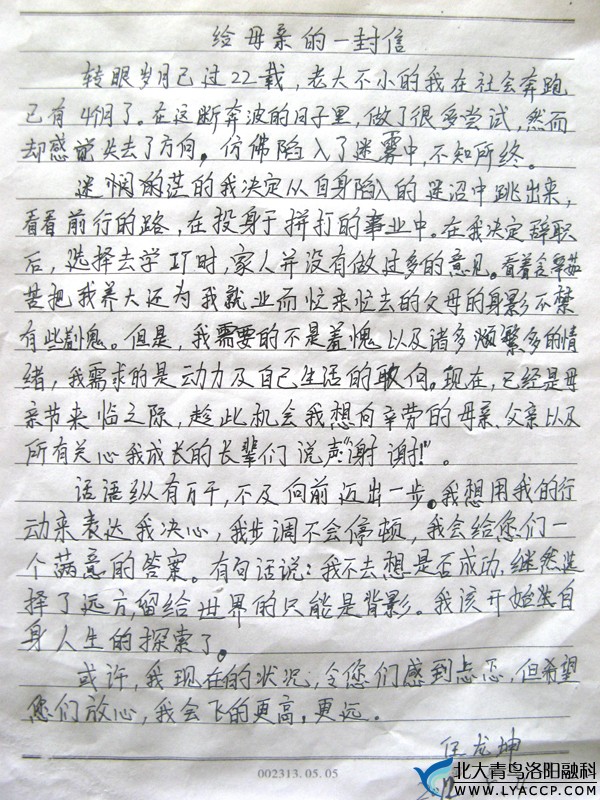 给母亲的一封信
转眼岁月已过22载，老大不小的我在社会奔跑
已有4个月了。在这断奔波的日子里，做了很多尝试，然而
却感觉失去了方向。仿佛陷入了迷雾中，不知所终。
迷惘的茫的我决定从自身陷入的泥沼中跳出来，
看看前行的路，在投身于拼打的事业中。在我决定辞职
后，选择去学IT时，家人并没有做过多的意见。看着含辛茹
苦把我养大还为我就业而忙来忙去的父母的身影不禁
有些羞愧。但是，我需要的不是羞愧以及诸多烦繁多的情
绪，我需求的是动力及自己生活的取向。现在，已经是母
亲节来临之际，趁此机会我想向辛劳的母亲、父亲以及
所有关心我成长的长辈们说声"谢谢！"。
话语纵有万千，不及向前迈出一步。我想用我的行
动来表达我决心，我步调不会停顿，我会给您们一
个满意的答案。有句话说：我不去想是否成功，继然选
择了远方，留给世界的只能是背影。我该开始自
身人生的探索了。
或许，我现在的状况，令您们感到忐忑，但希望
您们放心，我会飞的更高，更远。
任龙坤
002313.05.05
北大青鸟洛阳融科
WWW.LYACCP.COM